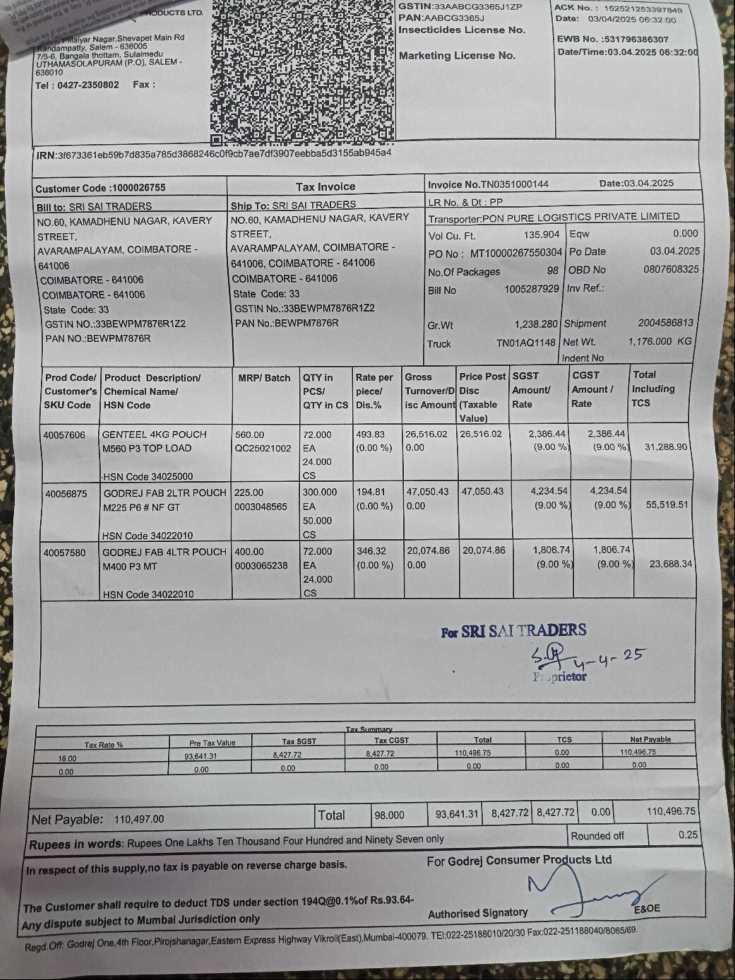 PRODUCTS LTD.
Nagar,Shevapet Main Rd
Kandampatty, Salem - 636005
7/5-6, Bangala thottam, Sulaimedu
UTHAMASOLAPURAM (P.O), SALEM -
636010
Tel : 0427-2350802 Fax :
GSTIN:33AABCG3365J1ZP
PAN:AABCG3365J
Insecticides License No.
Marketing License No.
ACK No. :
Date: 03/04/2025 06:32:00
EWB No. :531796386307
Date/Time:03.04.2025 06:32:00
IRN:3f673361eb59b7d835a785d3868246c0f9cb7ae7df3907eebba5d3155ab945a4
Customer Code :1000026755 Tax Invoice Invoice No.TN0351000144 Date:03.04.2025
Bill to: SRI SAI TRADERS
NO.60, KAMADHENU NAGAR, KAVERY
STREET,
AVARAMPALAYAM, COIMBATORE -
641006
COIMBATORE - 641006
COIMBATORE - 641006
State Code: 33
GSTIN NO.:33BEWPM7876R1Z2
PAN NO.:BEWPM7876R
Ship To: SRI SAI TRADERS
NO.60, KAMADHENU NAGAR, KAVERY
STREET,
AVARAMPALAYAM, COIMBATORE -
641006, COIMBATORE - 641006
COIMBATORE - 641006
State Code: 33
GSTIN No.:33BEWPM7876R1Z2
PAN No.:BEWPM7876R
LR No. & Dt : PP
Transporter:PON PURE LOGISTICS PRIVATE LIMITED
Vol Cu. Ft. 135.904 Eqw 0.000
PO No : MT10000267550304 Po Date 03.04.2025
No.Of Packages 98 OBD No 0807608325
Bill No 1005287929 Inv Ref.:
Gr.Wt 1,238.280 Shipment 2004586813
Truck TN01AQ1148 Net Wt. 1,176.000 KG
Indent No
Prod Code/ Product Description/ MRP/ Batch QTY in Rate per Gross Price Post SGST CGST Total
Customer's Chemical Name/ PCS/ piece/ Turnover/D Disc Amount/ Amount / Including
SKU Code HSN Code QTY in CS Dis.% isc Amount (Taxable Rate Rate TCS
Value)
40057606 GENTEEL 4KG POUCH 560.00 72.000 493.83 26,516.02 26,516.02 2,386.44 2,386.44
M560 P3 TOP LOAD QC25021002 EA (0.00 %) 0.00 (9.00 %) (9.00 %) 31,288.90
24.000
HSN Code 34025000 CS
40056875 GODREJ FAB 2LTR POUCH 225.00 300.000 194.81 47,050.43 47,050.43 4,234.54 4,234.54
M225 P6 # NF GT 0003048565 EA (0.00 %) 0.00 (9.00 %) (9.00 %) 55,519.51
50.000
HSN Code 34022010 CS
40057580 GODREJ FAB 4LTR POUCH 400.00 72.000 346.32 20,074.86 20,074.86 1,806.74 1,806.74
M400 P3 MT 0003065238 EA (0.00 %) 0.00 (9.00 %) (9.00 %) 23,688.34
24.000
HSN Code 34022010 CS
For SRI SAI TRADERS
4-4-25
Proprietor
Tax Summary
Tax Rate % Pre Tax Value Tax SGST Tax CGST Total TCS Net Payable
18.00 93,641.31 8,427.72 8,427.72 110,496.75 0.00 110,496.75
0.00 0.00 0.00 0.00 0.00 0.00 0.00
Net Payable: 110,497.00 Total 98.000 93,641.31 8,427.72 8,427.72 0.00 110,496.75
Rupees in words: Rupees One Lakhs Ten Thousand Four Hundred and Ninety Seven only Rounded off 0.25
In respect of this supply,no tax is payable on reverse charge basis.
For Godrej Consumer Products Ltd
The Customer shall require to deduct TDS under section 194Q@0.1%of Rs.93.64-
Any dispute subject to Mumbai Jurisdiction only
Authorised Signatory E&OE
Regd.Off: Godrej One,4th Floor,Pirojshanagar,Eastern Express Highway Vikroli(East),Mumbai-400079. TEl:022-25188010/20/30 Fax:022-251188040/8065/69.